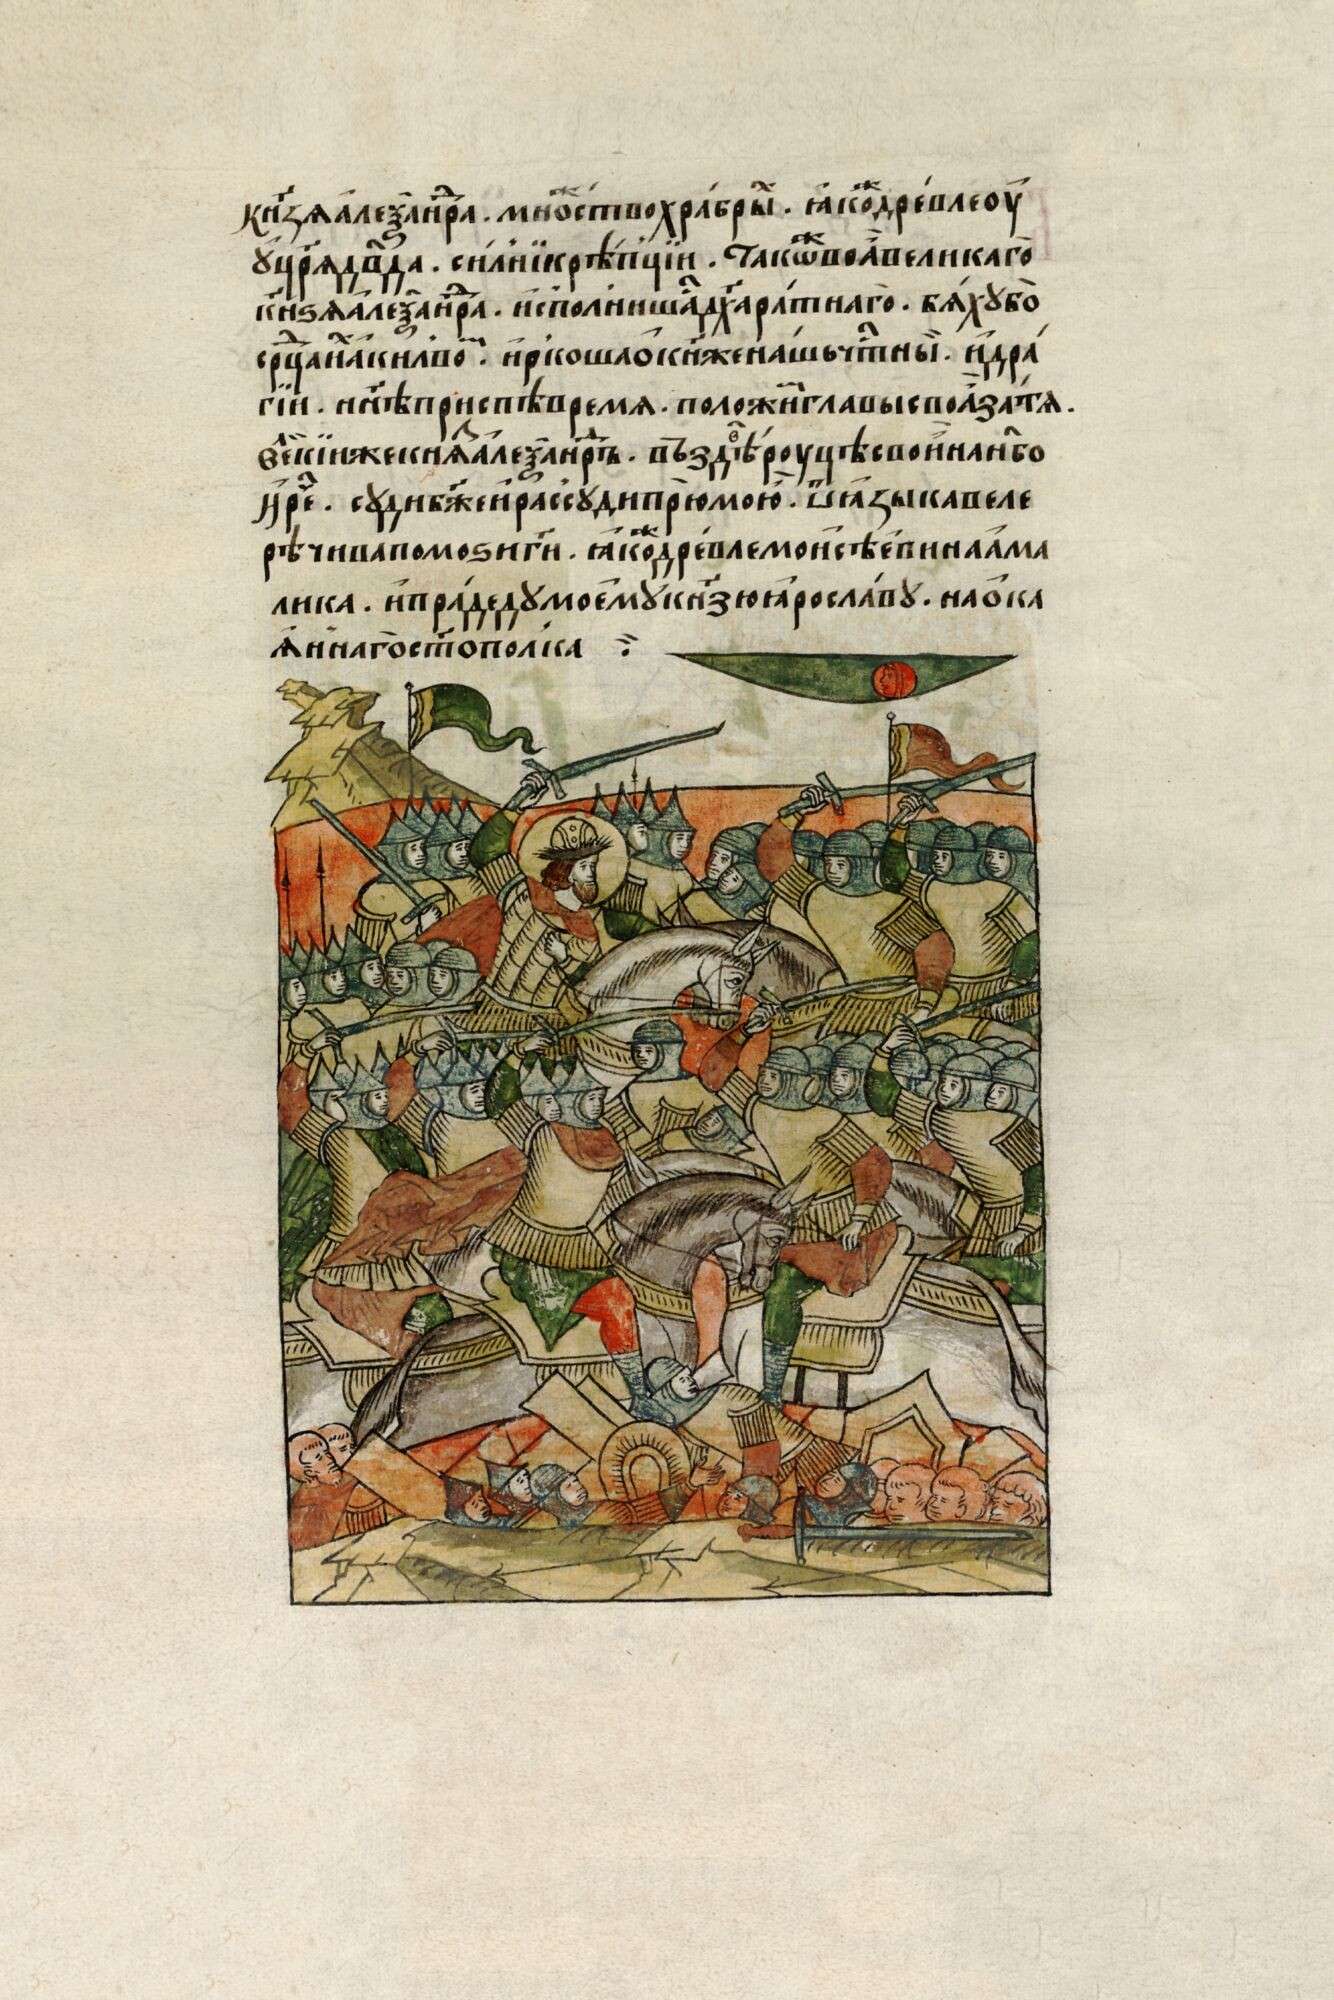 кнѧзѧ алеѯандра . множество храбрых . ꙗкоже древле оу
ү цр҃ѧ дв҃да . силнїи крѣпцїи . тако же воѧ великаго
кнѧѕѧ алеѯандра . исполнишасѧ дꙋха ратнаго . бѧхү бо
срⷣца их аки лвом . и ркоша о кнѧже нашь чⷭ҇тныи . и дра
гїи . нн҃ѣ приспѣ времѧ . положити главы своѧ за тѧ .
великїи же кнѧз алеѯандръ . въздѣв роуцѣ свои на н҃бо
и реⷱ҇ . сүди бж҃е и разсүди прю мою . ѿ ꙗзыка веле
рѣчива помоѕи ги҃ . ꙗкоже древле моисѣеви на ама
лика . и прадедү моемү кнѧзю ꙗрославү . на ока
ѧннаго ст҃ополка :~